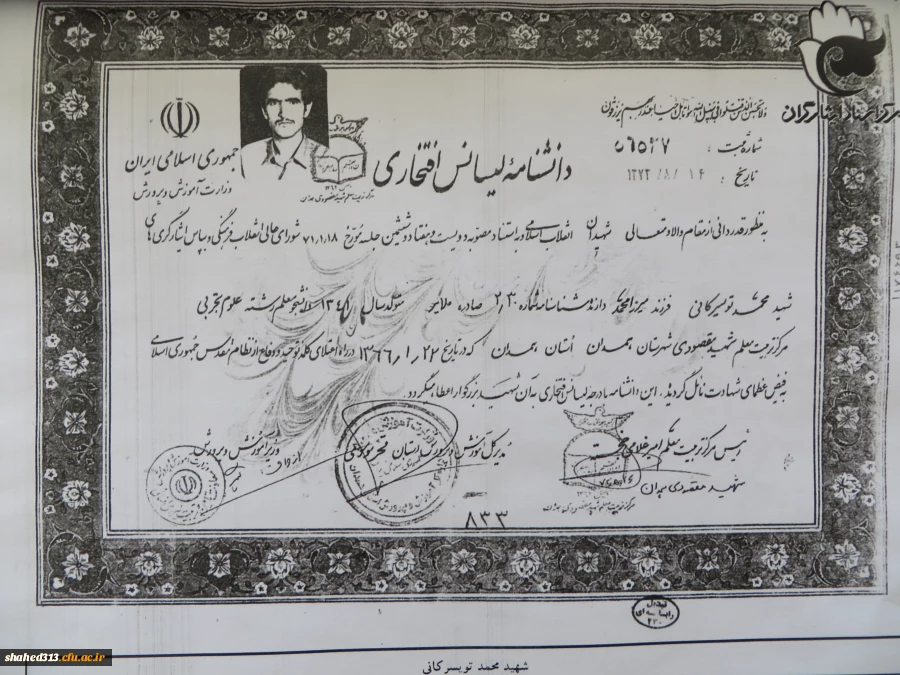 ولا تحسبن الذین قتلوا فی سبیل الله امواتا بل احیاء عند ربهم یرزقون
مرکز اسناد ایثارگران
شماره ثبت : ۵۶۵۲۷
تاریخ : ۱۳۷۳/۸/۱۴
جمهوری اسلامی ایران
وزارت آموزش و پرورش
دانشنامهٔ لیسانس افتخاری
به منظور قدردانی از مقام والا و متعالی شهیدان انقلاب اسلامی به استناد مصوبه دویست و هفتاد و ششمین جلسه مورخ ۷۱/۱/۱۸ شورای عالی انقلاب فرهنگی و بپاس ایثارگری های
شهید محمد تویسرکانی فرزند میرزامحمد دارنده شناسنامه شماره ۲۰۳۰ صادره ملایر متولد سال ۱۳۴۱ دانشجو معلم رشته علوم تجربی
مرکز تربیت معلم شهید مقصودی شهرستان همدان استان همدان که در تاریخ ۱۳۶۶/۱/۲۲ در راه اعتلای کلمه توحید و دفاع از نظام مقدس جمهوری اسلامی
به فیض عظمای شهادت نائل گردیدند، این دانشنامه با درجه لیسانس افتخاری به آن شهید بزرگوار اعطا میگردد.
رئیس مرکز تربیت معلم
شهید مقصودی همدان
مدیر کل آموزش و پرورش استان
وزیر آموزش و پرورش
از طرف
۸۳۳
shahed313.cfu.ac.ir
شهید محمد تویسرکانی